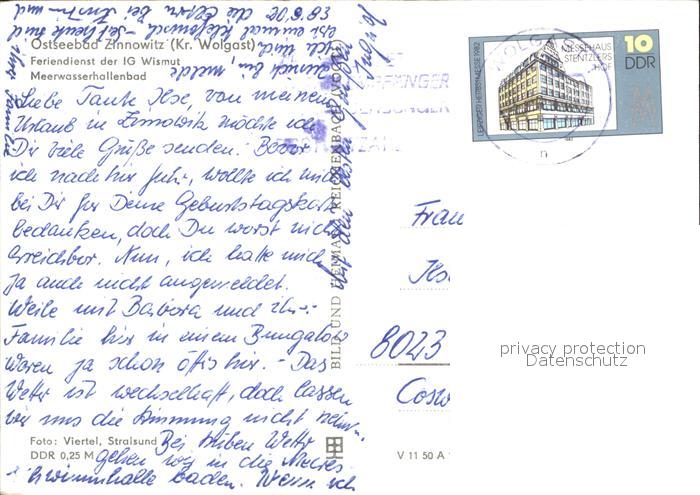 Ostseebad Zinnowitz (Kr. Wolgast)
Feriendienst der IG Wismut
Meerwasserhallenbad
Liebe Tante Ilse, von meinem
Urlaub in Zinnowitz möchte ich
Dir viele Grüße senden. Bevor
ich nach hier fuhr, wollte ich mich
bei Dir für Deine Geburtstagskarte
bedanken, doch Du warst nicht
erreichbar. Nun, ich hatte mich
ja auch nicht angemeldet.
Weile mit Barbara und ihrer
Familie hier in einem Bungalow
waren ja schon öfters hier. - Das
Wetter ist wechselhaft, doch lassen
wir uns die Stimmung nicht nehm.
Bei trüben Wetter
gehen wir in die Meeres-
schwimmhalle baden. Wenn ich
Foto: Viertel, Stralsund
DDR 0,25 M
V 11 50 A
BILD UND HEIMAT REICHENBACH (VOGTL)
LEIPZIGER HERBSTMESSE 1982
MESSEHAUS
STENTZLERS
HOF
10
DDR
WOLGAST
n
Frau
Ilse
8023
Cosw
privacy protection
Datenschutz